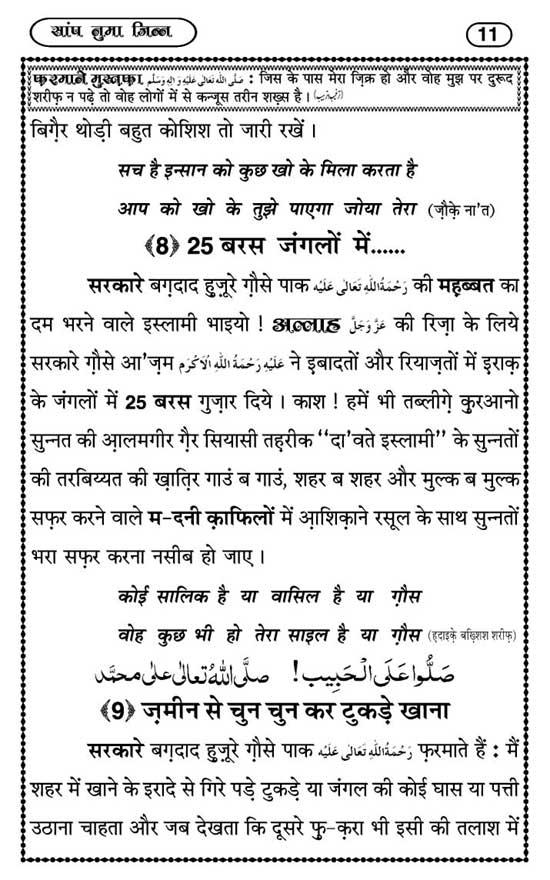 सांप नुमा जिन्न
11
फ़रमाने मुस्तफ़ा صَلَّى اللهُ تَعَالٰى عَلَيْهِ وَاٰلِهٖ وَسَلَّم : जिस के पास मेरा ज़िक्र हो और वोह मुझ पर दुरूद
शरीफ़ न पढ़े तो वोह लोगों में से कन्जूस तरीन शख़्स है ।
बिग़ैर थोड़ी बहुत कोशिश तो जारी रखें ।
सच है इन्सान को कुछ खो के मिला करता है
आप को खो के तुझे पाएगा जोया तेरा (ज़ौक़े ना'त)
﴾8﴿ 25 बरस जंगलों में......
सरकारे बग़दाद हुज़ूरे ग़ौसे पाक رَحْمَةُ اللهِ تَعَالٰى عَلَيْه की महब्बत का
दम भरने वाले इस्लामी भाइयो ! अल्लाह عَزَّوَجَلَّ की रिज़ा के लिये
सरकारे ग़ौसे आ'ज़म عَلَيْهِ رَحْمَةُ اللهِ الْاَكْرَم ने इबादतों और रियाज़तों में इराक़
के जंगलों में 25 बरस गुज़ार दिये । काश ! हमें भी तब्लीग़े क़ुरआनो
सुन्नत की आलमगीर ग़ैर सियासी तह़रीक ‘‘दा'वते इस्लामी’’ के सुन्नतों
की तरबिय्यत की ख़ात़िर गाउं ब गाउं, शहर ब शहर और मुल्क ब मुल्क
सफ़र करने वाले म-दनी क़ाफ़िलों में आ़शिक़ाने रसूल के साथ सुन्नतों
भरा सफ़र करना नसीब हो जाए ।
कोई सालिक है या वासिल है या ग़ौस
वोह कुछ भी हो तेरा साइल है या ग़ौस (ह़दाइके़ बख़्शिश शरीफ़)
صَلُّوا عَلَى الْحَبِيب! صلَّى اللهُ تعالٰى على محمَّد
﴾9﴿ ज़मीन से चुन चुन कर टुकड़े खाना
सरकारे बग़दाद हुज़ूरे ग़ौसे पाक رَحْمَةُ اللهِ تَعَالٰى عَلَيْه फ़रमाते हैं : मैं
शहर में खाने के इरादे से गिरे पड़े टुकड़े या जंगल की कोई घास या पत्ती
उठाना चाहता और जब देखता कि दूसरे फु-क़रा भी इसी की तलाश में